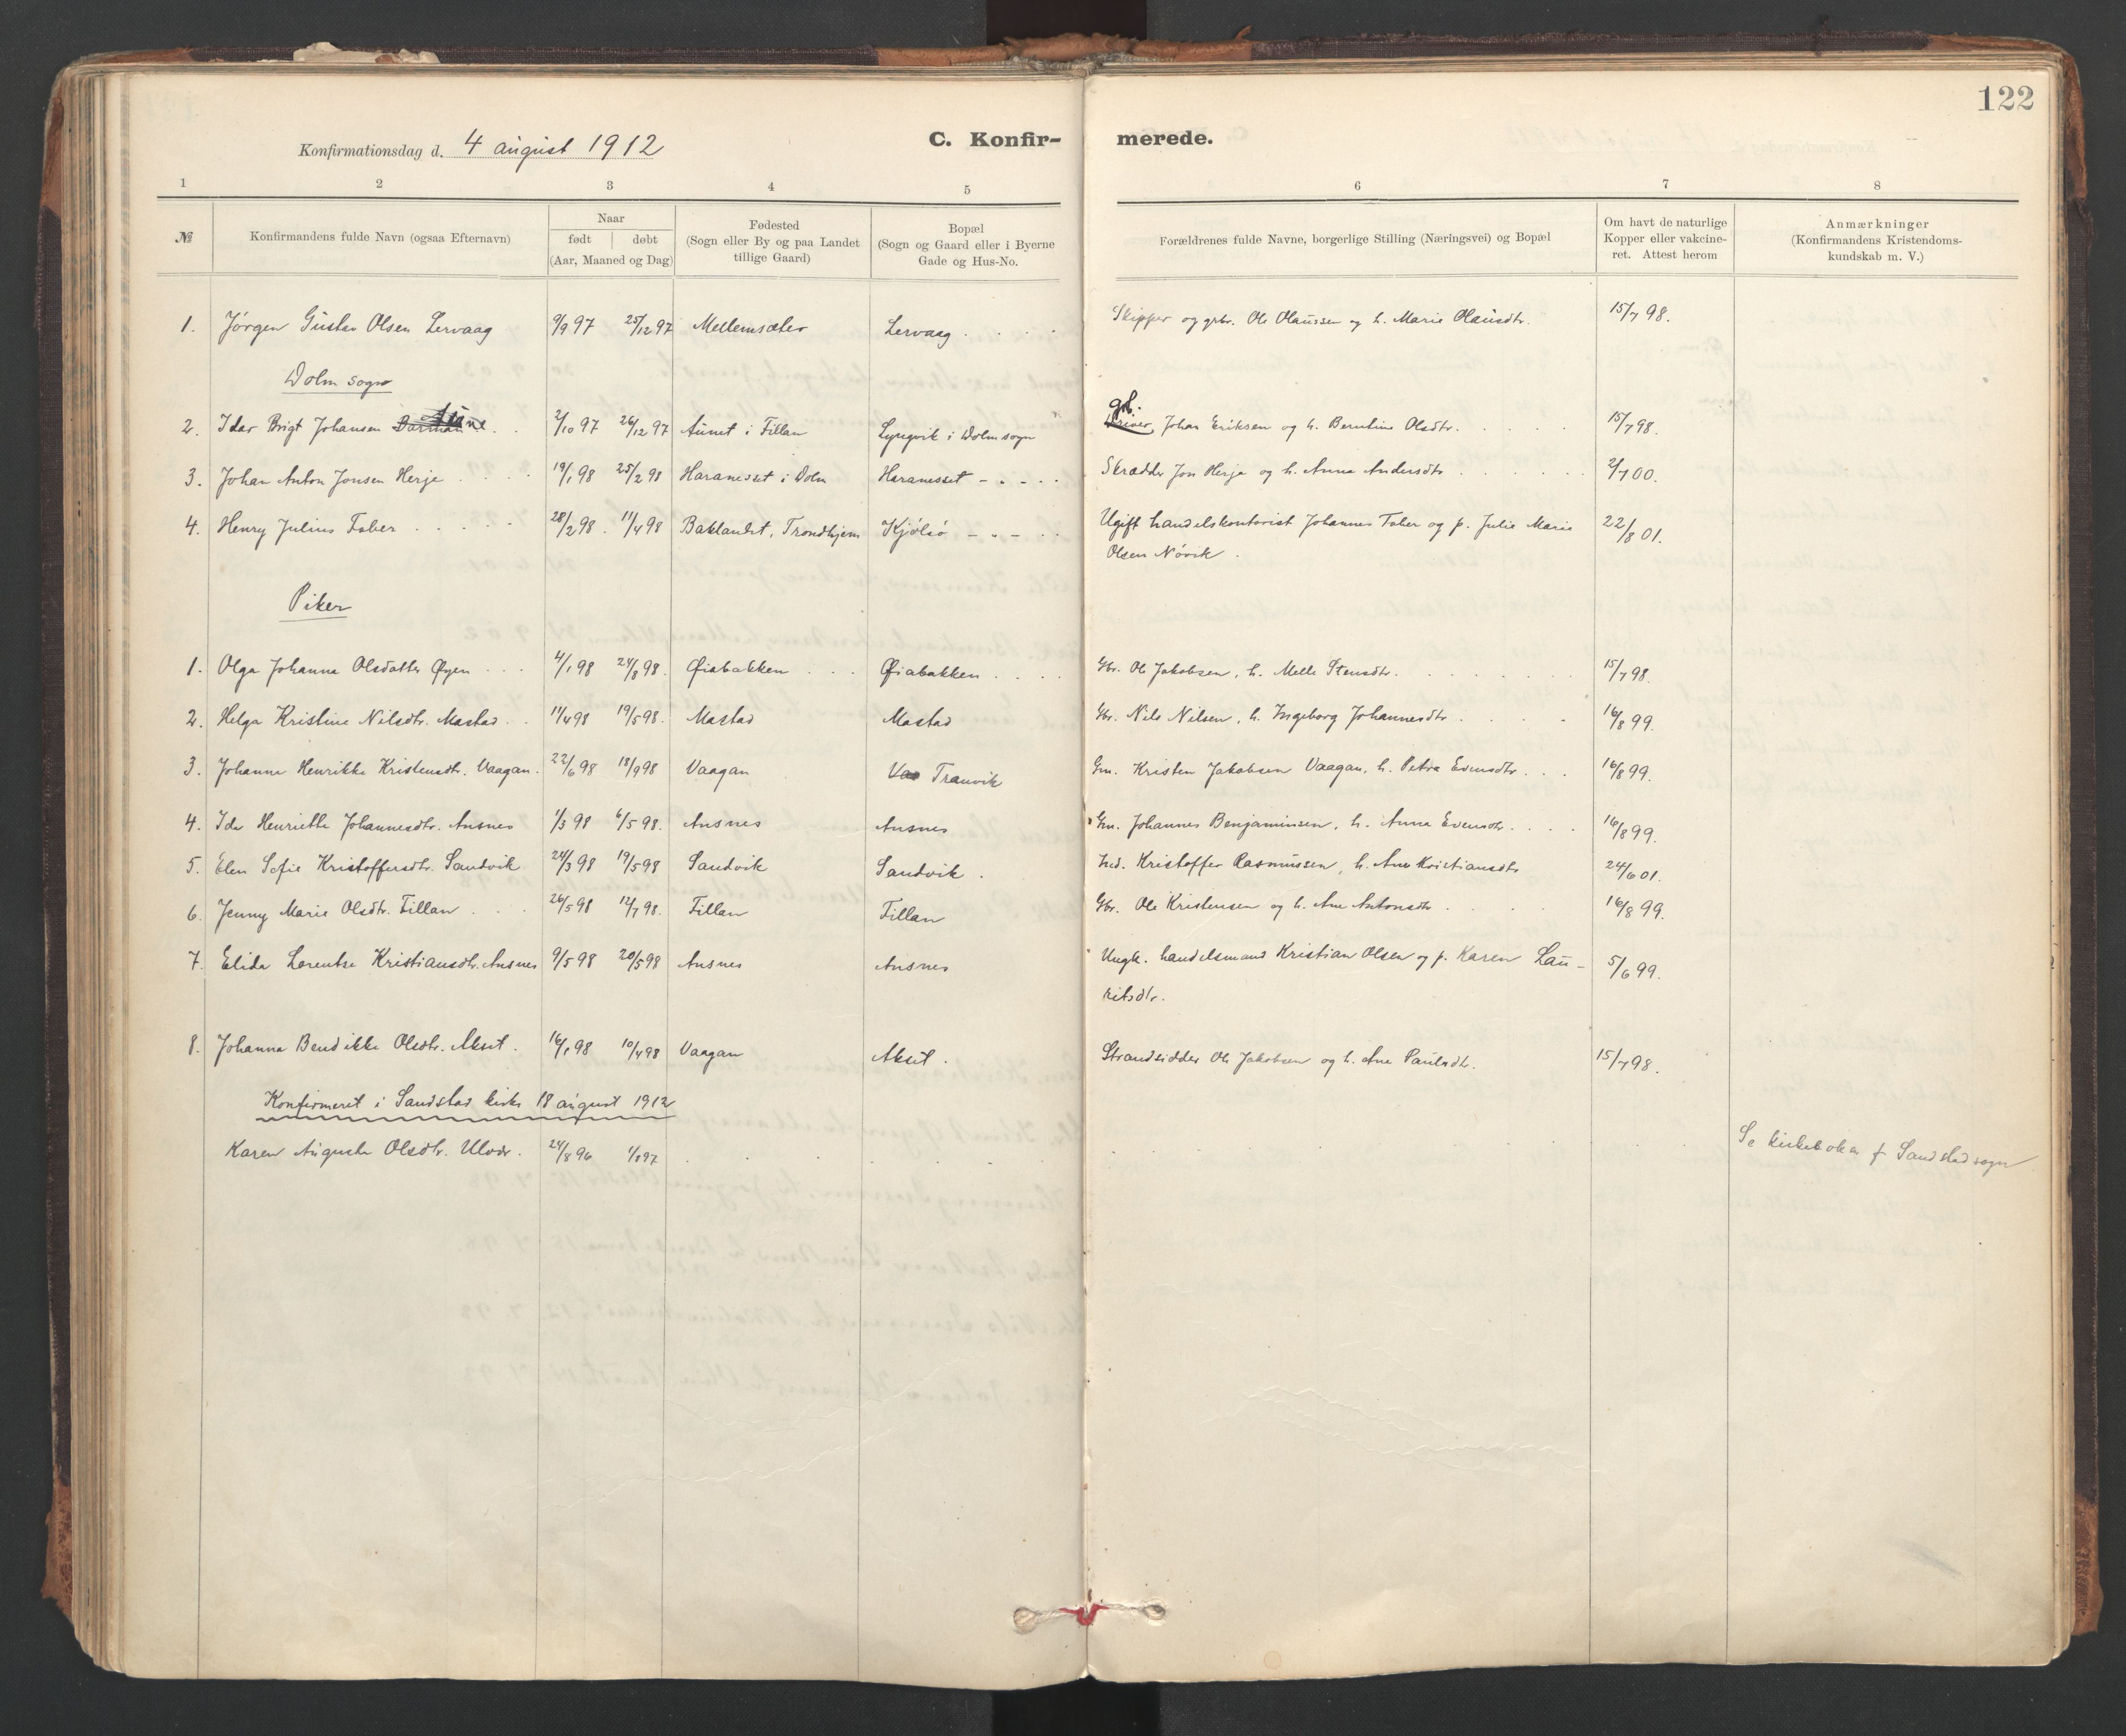 122
Konfirmationsdag d. 4 august 1912
C. Konfir- merede.
1 2 3 4 5 6 7 8
№
Konfirmandens fulde Navn (ogsaa Efternavn)
Naar
født døbt
(Aar, Maaned og Dag)
Fødested
(Sogn eller By og paa Landet
tillige Gaard)
Bopæl
(Sogn og Gaard eller i Byerne
Gade og Hus-No.
Forældrenes fulde Navne, borgerlige Stilling (Næringsvei) og Bopæl
Om havt de naturlige
Kopper eller vakcine-
ret. Attest herom
Anmærkninger
(Konfirmandens Kristendoms-
kundskab m. V.)
1. Jörgen Gustav Olsen Lervaag 9/9 97 25/12 97 Mellemsæter Lervaag Skipper og grbr. Ole Olaussen og h. Marie Olausdtr. 15/7 98.
Dolm sogn
grb.
2. Idar Brigt Johansen 2/10 97 26/12 97 Aunet i Fillan Lyngvik i Dolm sogn Johan Eriksen og h. Berntine Olsdtr. 15/7 98.
3. Johan Anton Jonsen Herje 19/1 98 25/2 98 Haranesset i Dolm Haranesset - " - Skrædder Jon Herje og h. Anna Andersdtr 2/7 00.
4. Henry Julius Faber 28/2 98. 11/4 98 Baklandet, Trondhjem Kjölsö - " - Ugift handelskontorist Johannes Faber og p. Julie Marie 22/8 01.
Olsen Növik.
Piker
1. Olga Johanna Olsdatter Øyen 4/1 98 24/8 98. Øiabakken Øiabakken Gbr. Ole Jakobsen, h. Melle Stensdtr. 15/7 98.
2. Helga Kristine Nilsdtr. Mastad 11/4 98 19/5 98. Mastad Mastad Gbr. Nils Nilsen, h. Ingeborg Johannesdtr 16/8 99.
3. Johanne Henrikke Kristensdtr. Vaagan. 22/6 98 18/9 98 Vaagan Tranvik Gm. Kristen Jakobsen Vaagan, h. Petra Evensdtr. 16/8 99.
4. Ida Henriette Johannesdtr. Ansnes 1/3 98 6/5 98. Ansnes Ansnes Gm. Johannes Benjaminsen, h. Anna Evensdtr. 16/8 99.
5. Elen Sofie Kristoffersdtr. Sandvik 24/3 98 19/5 98 Sandvik Sandvik. Ind. Kristoffer Rasmussen, h. Ane Kristiansdtr 24/6 01.
6. Jenny Marie Olsdtr. Fillan 26/5 98 12/7 98. Fillan Fillan Gbr. Ole Kristensen og h. Ane Antonsdtr. 16/8 99.
7. Elida Lorentse Kristiansdtr. Ansnes 9/5 98 20/5 98 Ansnes Ansnes Ungk. handelsmand Kristian Olsen og p. Karen Lau- 5/6 99.
ritsdtr.
8. Johanna Bendikke Olsdtr. Akset. 16/1 98 10/4 98 Vaagan Akset. Strandsidder Ole Jakobsen og h. Ane Paulsdtr. 15/7 98.
Konfirmeret i Sandstad kirke 18 august 1912
Karen Auguste Olsdtr. Ulvør. 24/8 96 1/1 97 Se kirkeboken f Sandstad sogn